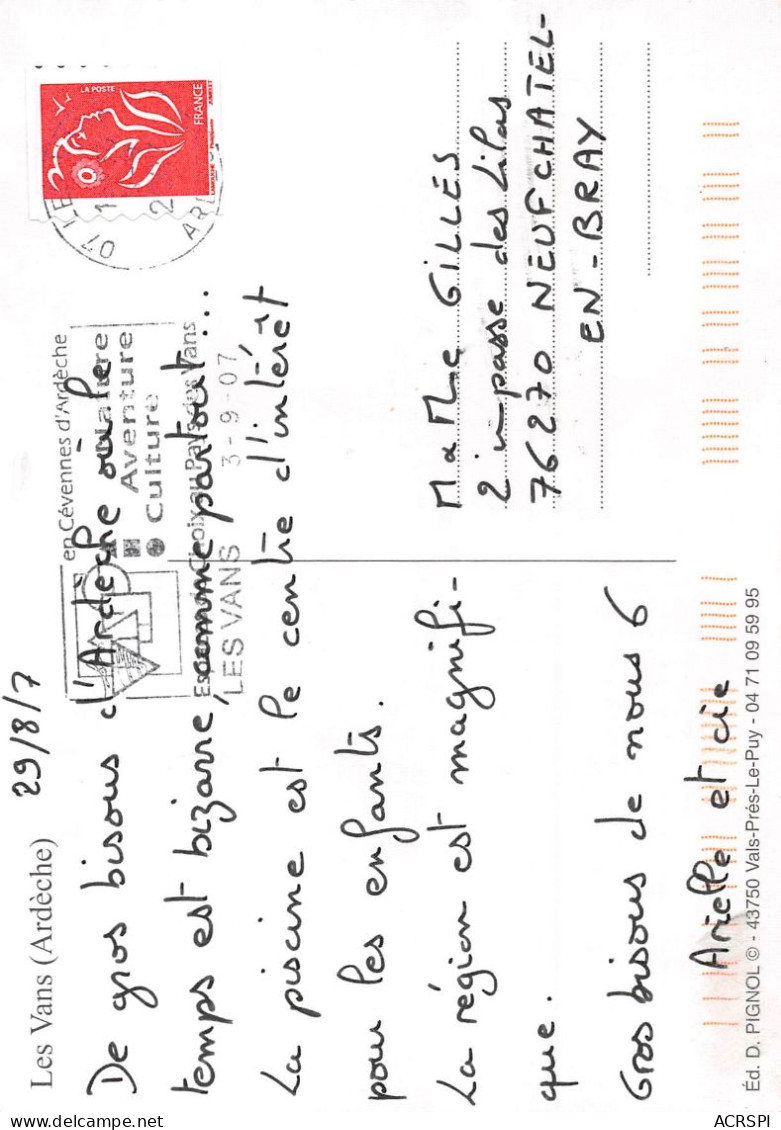 Les Vans (Ardèche)
29/8/7
De gros bisous d'Ardèche où le
temps est bizarre, comme partout...
La piscine est le centre d'intérêt
pour les enfants.
La région est magnifi-
que.
Gros bisous de nous 6
Arielle et cie
LA POSTE
FRANCE
07 LE
ARD
en Cévennes d'Ardèche
Nature
Aventure
Culture
Pays des Vans
LES VANS 3-9-07
MaMie GILLES
2 impasse des Lilas
76270 NEUFCHATEL-
EN-BRAY
Éd. D. PIGNOL © - 43750 Vals-Prés-Le-Puy - 04 71 09 59 95
ACRSPI